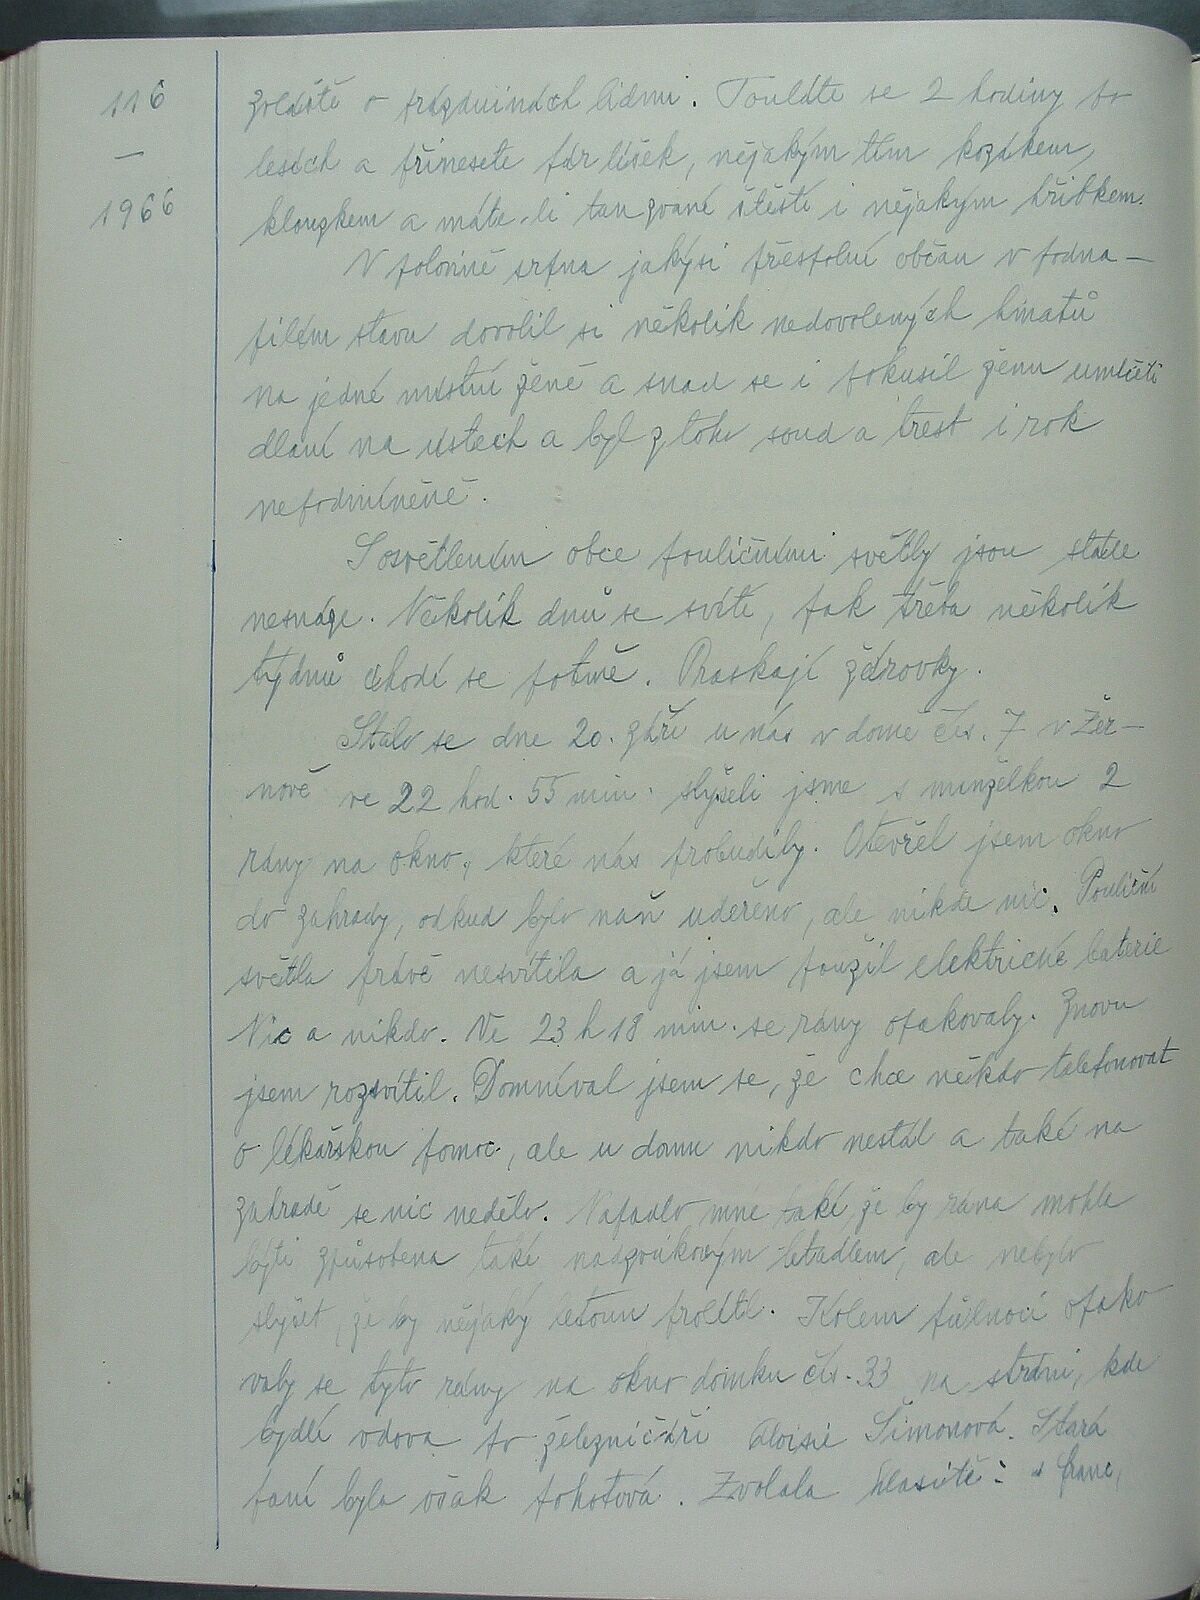 116
—
1966
zvláště o prázdninách lidmi. Touláte se 2 hodiny po
lesích a přinesete pár lišek, nějakým tím kozákem,
klouzkem a máte-li tan zvané štěstí i nějakým hříbkem.
V polovině srpna jakýsi přespolní občan v podna-
pilém stavu dovolil si několik nedovolených hmatů
na jedné místní ženě a snad se i pokusil ženu umlčeti
dlaní na ústech a byl z toho soud a trest i rok
nepodmíněně.
S osvětlením obce pouličními světly jsou stále
nesnáze. Několik dnů se svítí, pak třeba několik
týdnů chodí se potmě. Praskají žárovky.
Stalo se dne 20. září u nás v domě čís. 7 v Žer-
nově ve 22 hod. 55 min. slyšeli jsme s manželkou 2
rány na okno, které nás probudily. Otevřel jsem okno
do zahrady, odkud bylo naň udeřeno, ale nikde nic. Pouliční
světla právě nesvítila a já jsem použil elektrické baterie
Nic a nikdo. Ve 23 h 18 min. se rány opakovaly. Znovu
jsem rozsvítil. Domníval jsem se, že chce někdo telefonovat
o lékařskou pomoc, ale u domu nikdo nestál a také na
zahradě se nic nedělo. Napadlo mne také, že by rána mohla
býti způsobena také nadzvukovým letadlem, ale nebylo
slyšet, že by nějaký letoun proletěl. Kolem půlnoci opako
valy se tyto rány na okno domku čís. 33 na stráni, kde
bydlí vdova po železničáři Aloisie Šimonová. Stará
paní byla však pohotová. Zvolala hlasitě: "